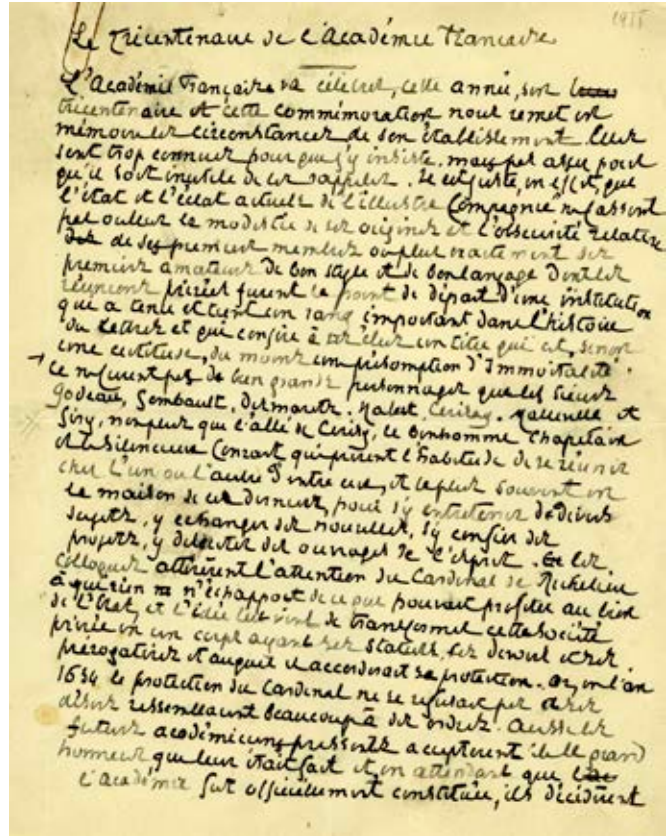 1935
Le tricentenaire de l'Académie française
L'Académie française va célébrer, cette année, son
tricentenaire et cette commémoration nous remet en
mémoire les circonstances de son établissement. Elles
sont trop connues pour que j'y insiste, mais pas assez pour
qu'il soit inutile de les rappeler. Il est juste, en effet, que
l'état et l'éclat actuels de l'illustre Compagnie ne fassent
pas oublier la modestie de ses origines et l'obscurité relative
de ses premiers membres ou plus exactement des
premiers amateurs de bon style et de bon langage dont les
réunions privées furent le point de départ d'une institution
qui a tenu et tient un rang important dans l'histoire
des Lettres et qui confère à ses élus un titre qui est, sinon
une certitude, du moins une présomption d'Immortalité.
Ce ne furent pas de bien grands personnages que les sieurs
Godeau, Gombault, Desmarets, Habert, Cerisay, Malleville et
Giry, non plus que l'abbé de Cerisy, le bonhomme Chapelain
et le silencieux Conrart qui prirent l'habitude de se réunir
chez l'un ou l'autre d'entre eux, et le plus souvent en
la maison de ce dernier, pour s'y entretenir de divers
sujets, y échanger des nouvelles, s'y confier des
projets, y disserter des ouvrages de l'esprit. Ces
colloques attirèrent l'attention du Cardinal de Richelieu
à qui rien n'échappait de ce que pouvait profiter au bien
de l'Etat, et l'idée lui vint de transformer cette société
privée en un corps ayant ses statuts, ses devoirs et ses
prérogatives et auquel il accorderait sa protection. Or, en l'an
1634 la protection du Cardinal ne se refusait pas et ses
désirs ressemblaient beaucoup à des ordres. Aussi les
futurs académiciens pressentis acceptèrent le grand
honneur qui leur était fait et en attendant que
l'Académie fut officiellement constituée, ils décidèrent